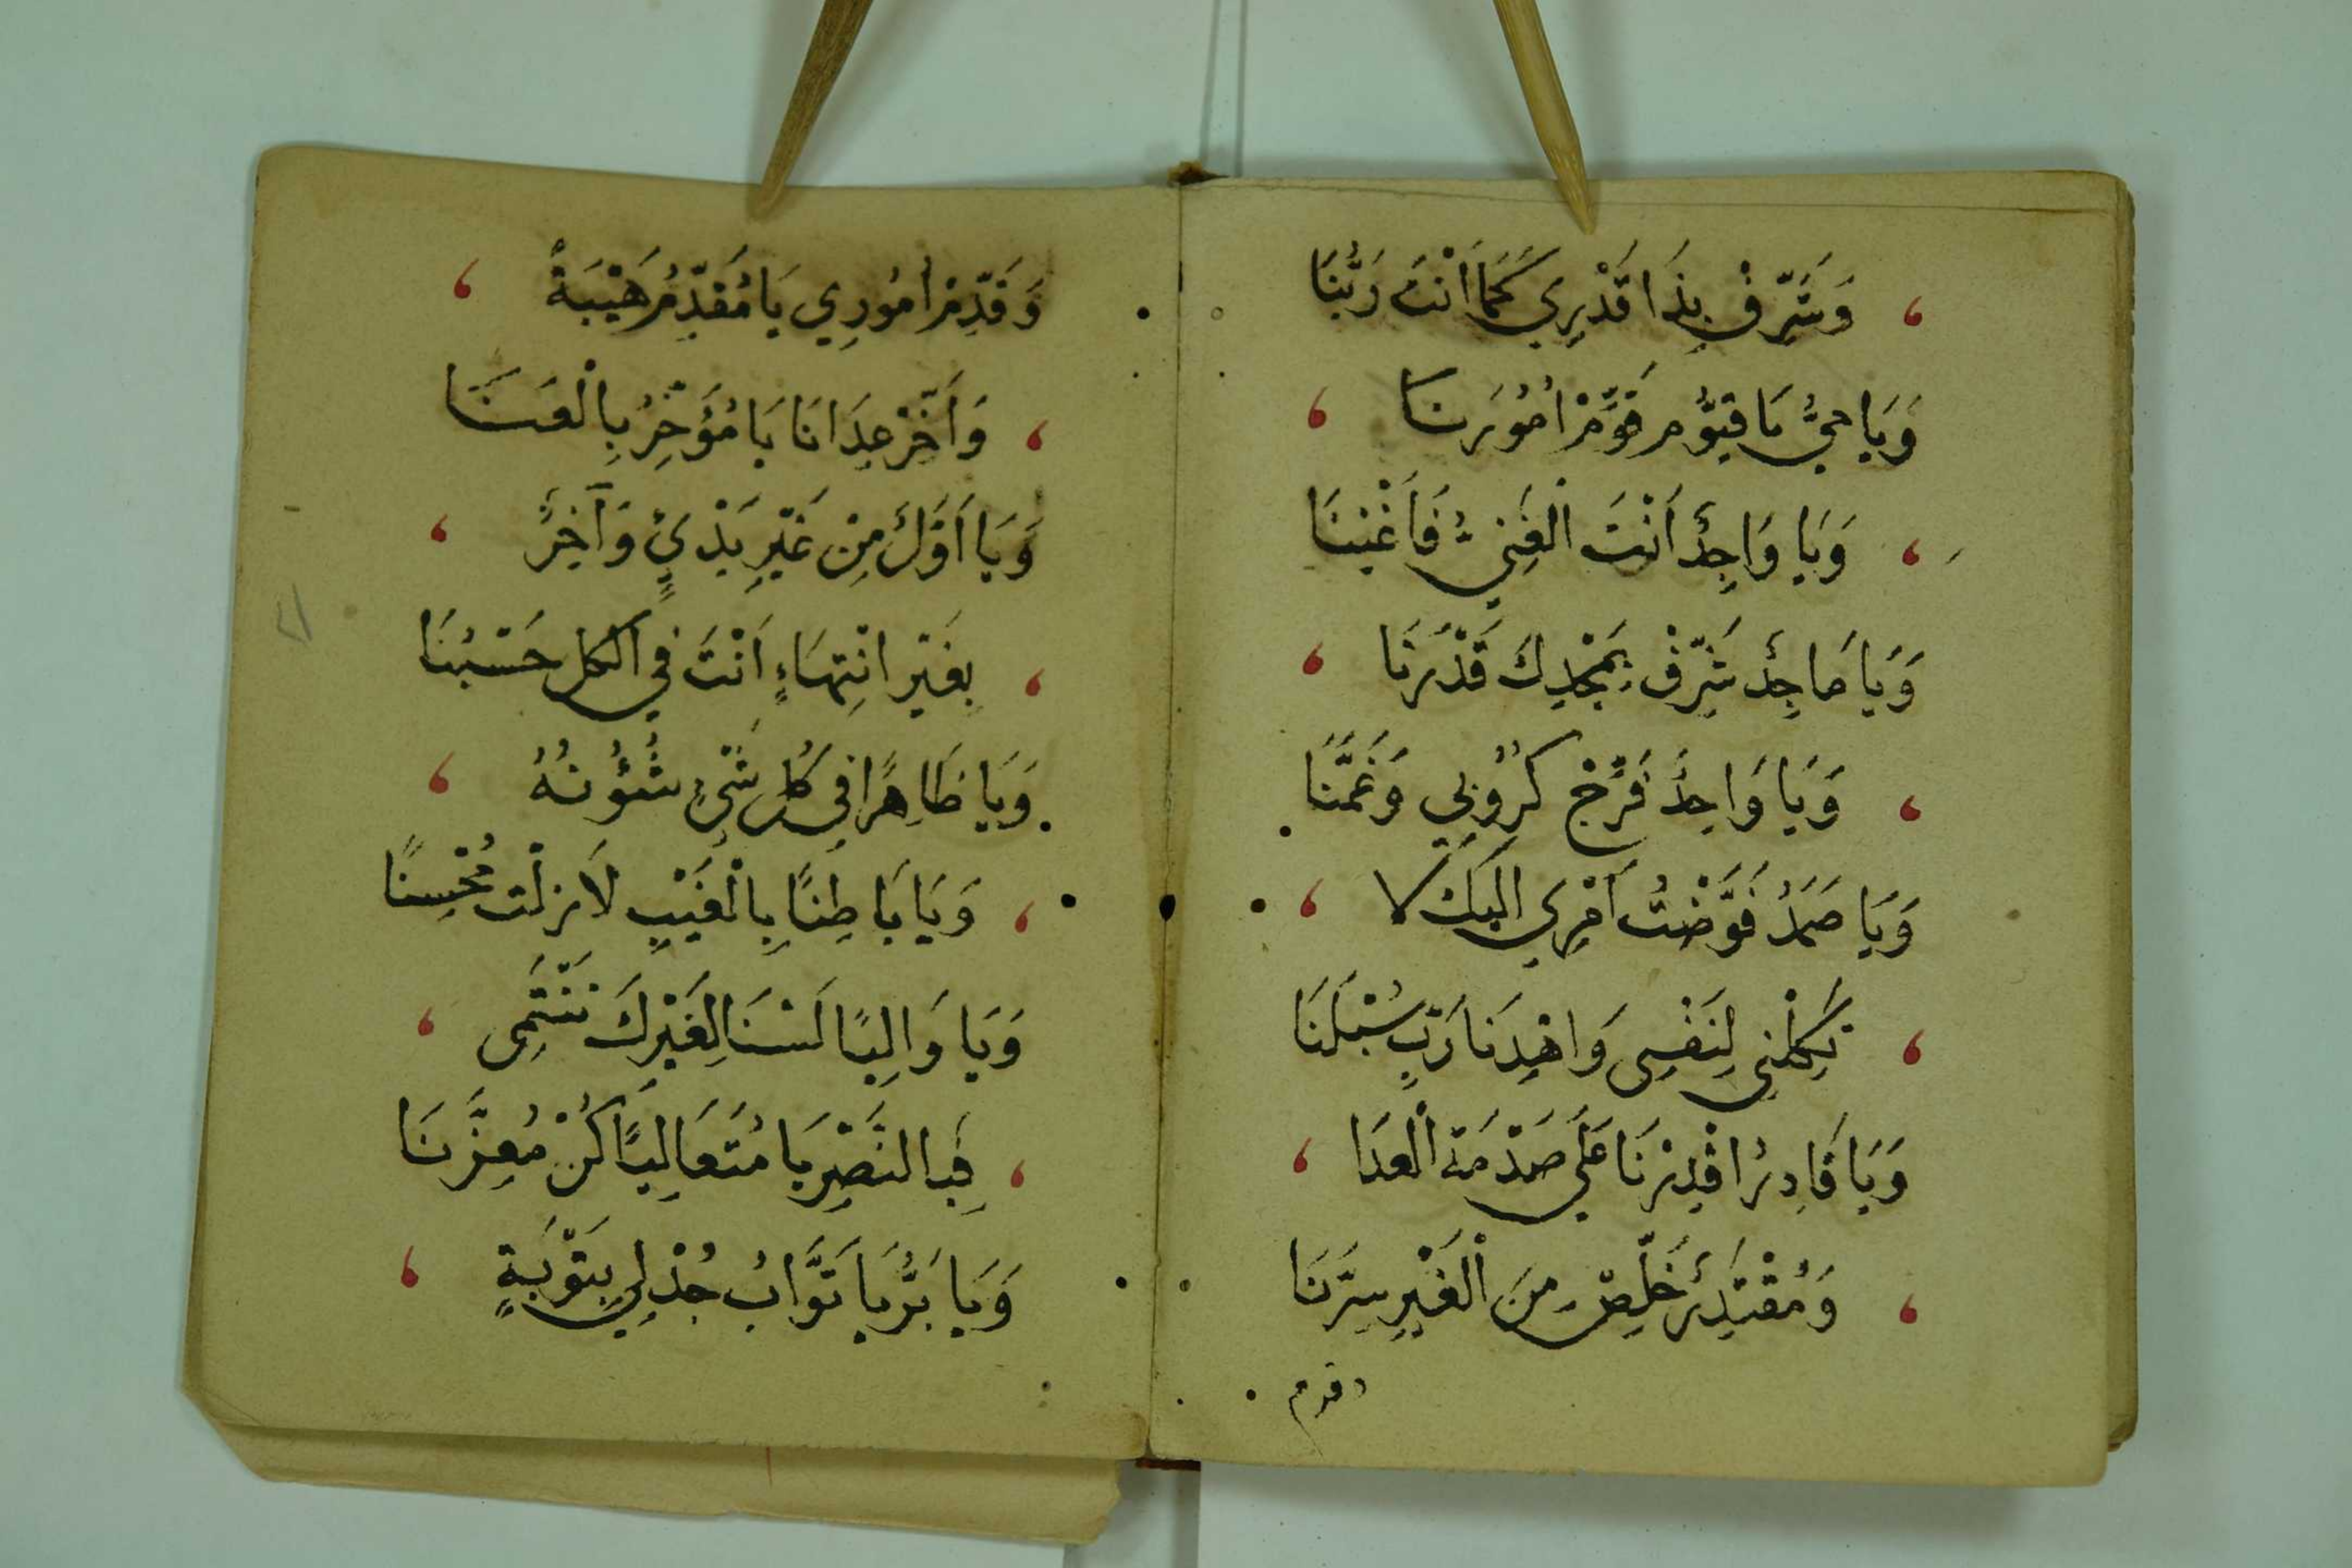 وَشَرِّفْ بِذَا قَدْرِي كَمَا اَنْتَ رَبُّنَا
وَيَا حَيُّ يَا قَيُّوْمُ قَوِّمْ اُمُوْرَنَا
وَيَا وَاجِدُ اَنْتَ الْغَنِيُّ فَاَغْنِنَا
وَيَا مَاجِدُ شَرِّفْ بِمَجْدِكَ قَدْرَنَا
وَيَا وَاحِدُ فَرِّجْ كُرُوْبِي وَغَمَّنَا
وَيَا صَمَدُ فَوَّضْتُ اَمْرِي اِلَيْكَ لَا
تَكِلْنِي لِنَفْسِى وَاهْدِنَا رَبِّ سُبْلَنَا
وَيَا قَادِرُ اقْدِرْنَا عَلَى صَدْمَةِ الْعِدَا
وَمُقْتَدِرُ خَلِّصْ مِنَ الْغَيْرِ سِرَّنَا
وقدم
وَقَدِّمْ اُمُوْرِي يَا مُقَدِّمُ هَيْبَةً
وَاَخِّرْ عِدَانَا يَا مُؤَخِّرُ بِالْعَنَا
وَيَا اَوَّلُ مِنْ غَيْرِ بَدْئٍ وَآخِرُ
بِغَيْرِ انْتِهَاءٍ اَنْتَ فِي الْكُلِّ حَسْبُنَا
وَيَا ظَاهِرًا فِي كُلِّ شَيْءٍ شُئُوْنُهُ
وَيَا بَاطِنًا بِالْغَيْبِ لَا زِلْتَ مُحْسِنًا
وَيَا وَالِيًا لَسْنَا لِغَيْرِكَ نَنْتَمِى
فَبِالنَّصْرِ يَا مُتَعَالِيًا كُنْ مُعِزَّنَا
وَيَا بَرُّ يَا تَوَّابُ جُدْ لِي بِتَوْبَةٍ